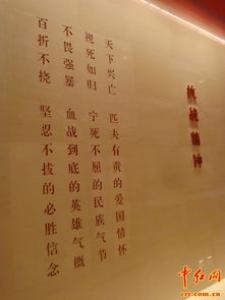 天下兴亡 匹夫有责的爱国情怀
视死如归 宁死不屈的民族气节
不畏强暴 血战到底的英雄气概
百折不挠 坚忍不拔的必胜信念
中红网
crt.com.cn